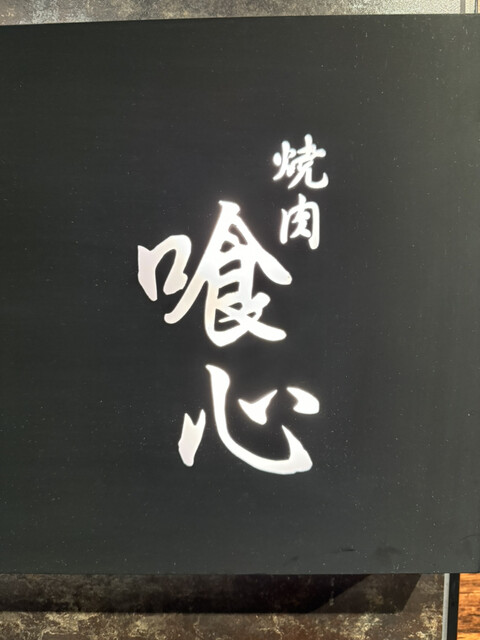 焼肉
喰心